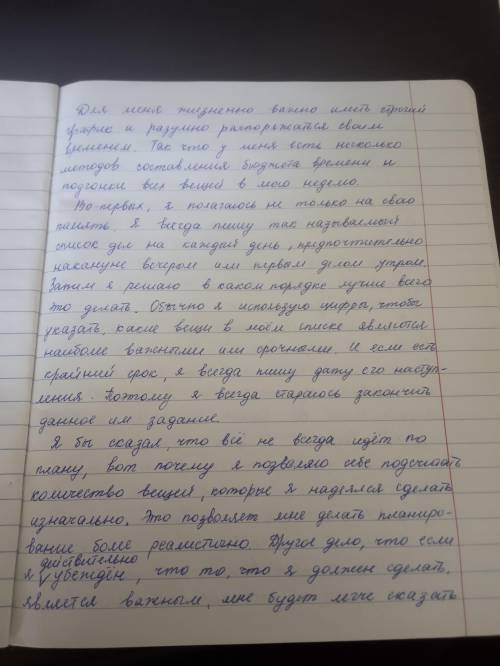 Для меня жизненно важно иметь строгий
график и разумно распоряжаться своим
временем. Так что у меня есть несколько
методов составления бюджета времени и
подгонки всех вещей в мою неделю.
Во-первых, я полагаюсь не только на свою
память. Я всегда пишу так называемый
список дел на каждый день, предпочтительно
накануне вечером или первым делом утром.
Затем я решаю в каком порядке лучше всего
это делать. Обычно я использую цифры, чтобы
указать, какие вещи в моём списке являются
наиболее важными или срочными. И если есть
крайний срок, я всегда пишу дату его наступ-
ления. Поэтому я всегда стараюсь закончить
данное им задание.
Я бы сказал, что всё не всегда идёт по
плану, вот почему я позволяю себе подсчитать
количество вещей, которые я надеялся сделать
изначально. Это позволяет мне делать планиро-
вание более реалистично. Другое дело, что если
действительно
я убеждён, что то, что я должен сделать,
является важным, мне будет легче сказать